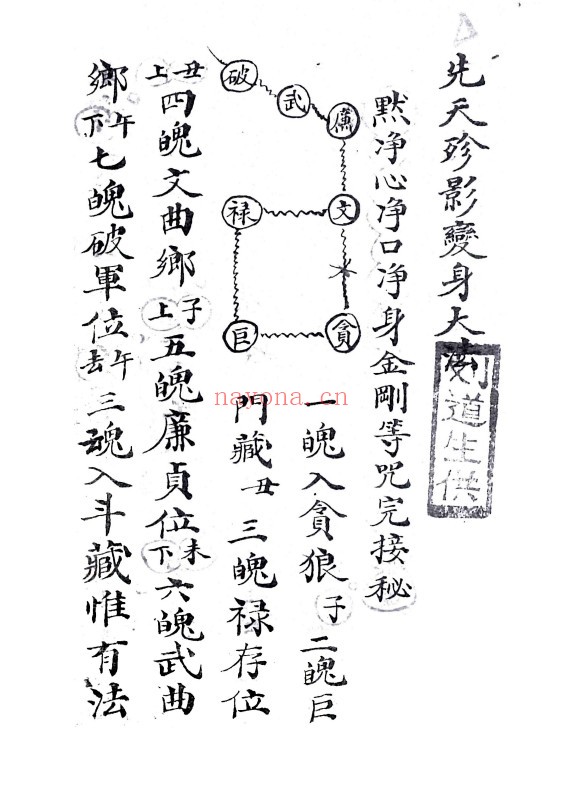 先天殄影變身大法
刘道生供
黙净心净口净身金剛等咒完接秘
破
武
廉
禄
文
巨
貪
一魄入貪狼子二魄巨
門藏丑三魄禄存位
丑上四魄文曲鄉子上五魄廉貞位未下六魄武曲
鄉午下七魄破軍位午去三魂入斗藏惟有法
nayona.cn